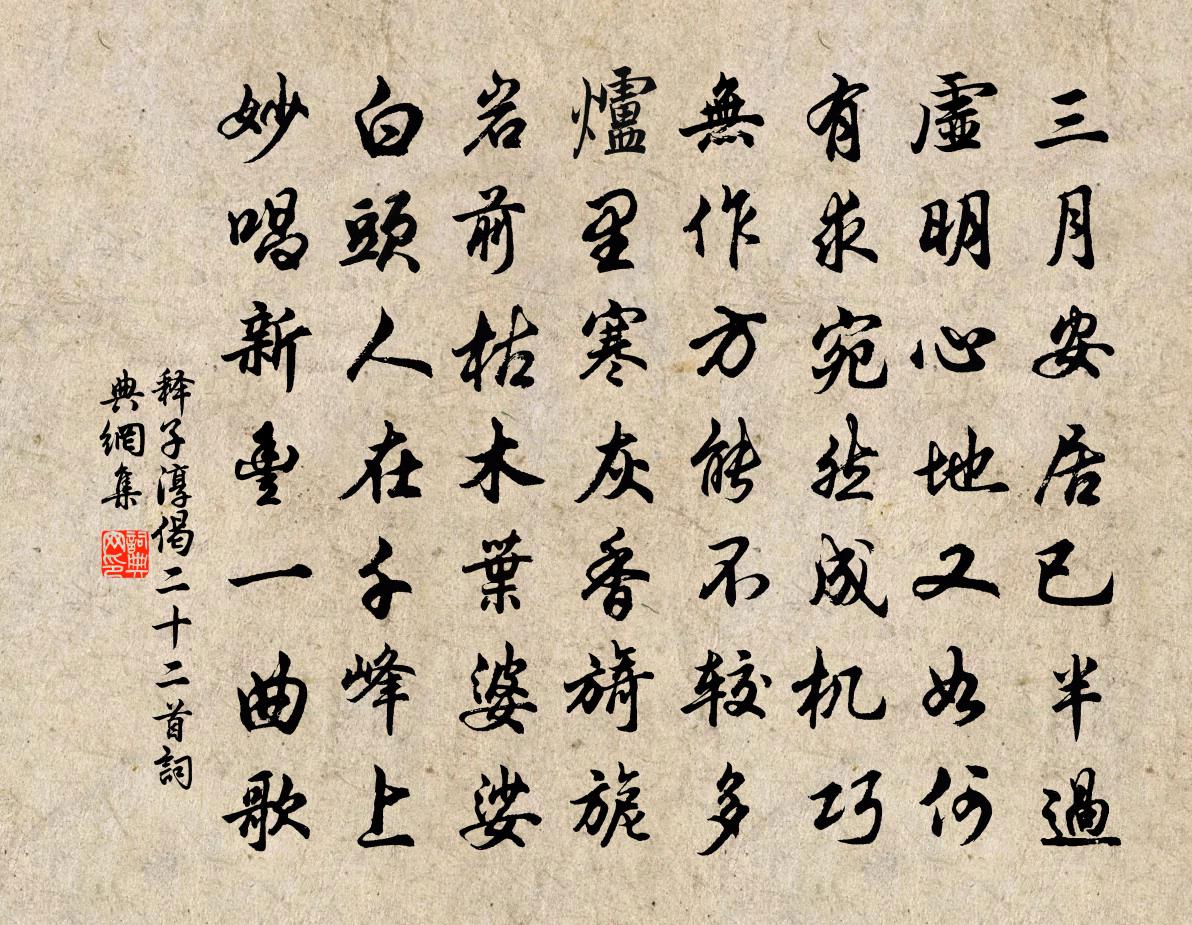 三月安居已半過
虛明心地又如何
有求宛然成机巧
無作方能不較多
爐里寒灰香旖旎
岩前枯木葉婆娑
白頭人在千峰上
妙唱新豐一曲歌
释子淳偈二十二首詞
典網集
詞典
网印